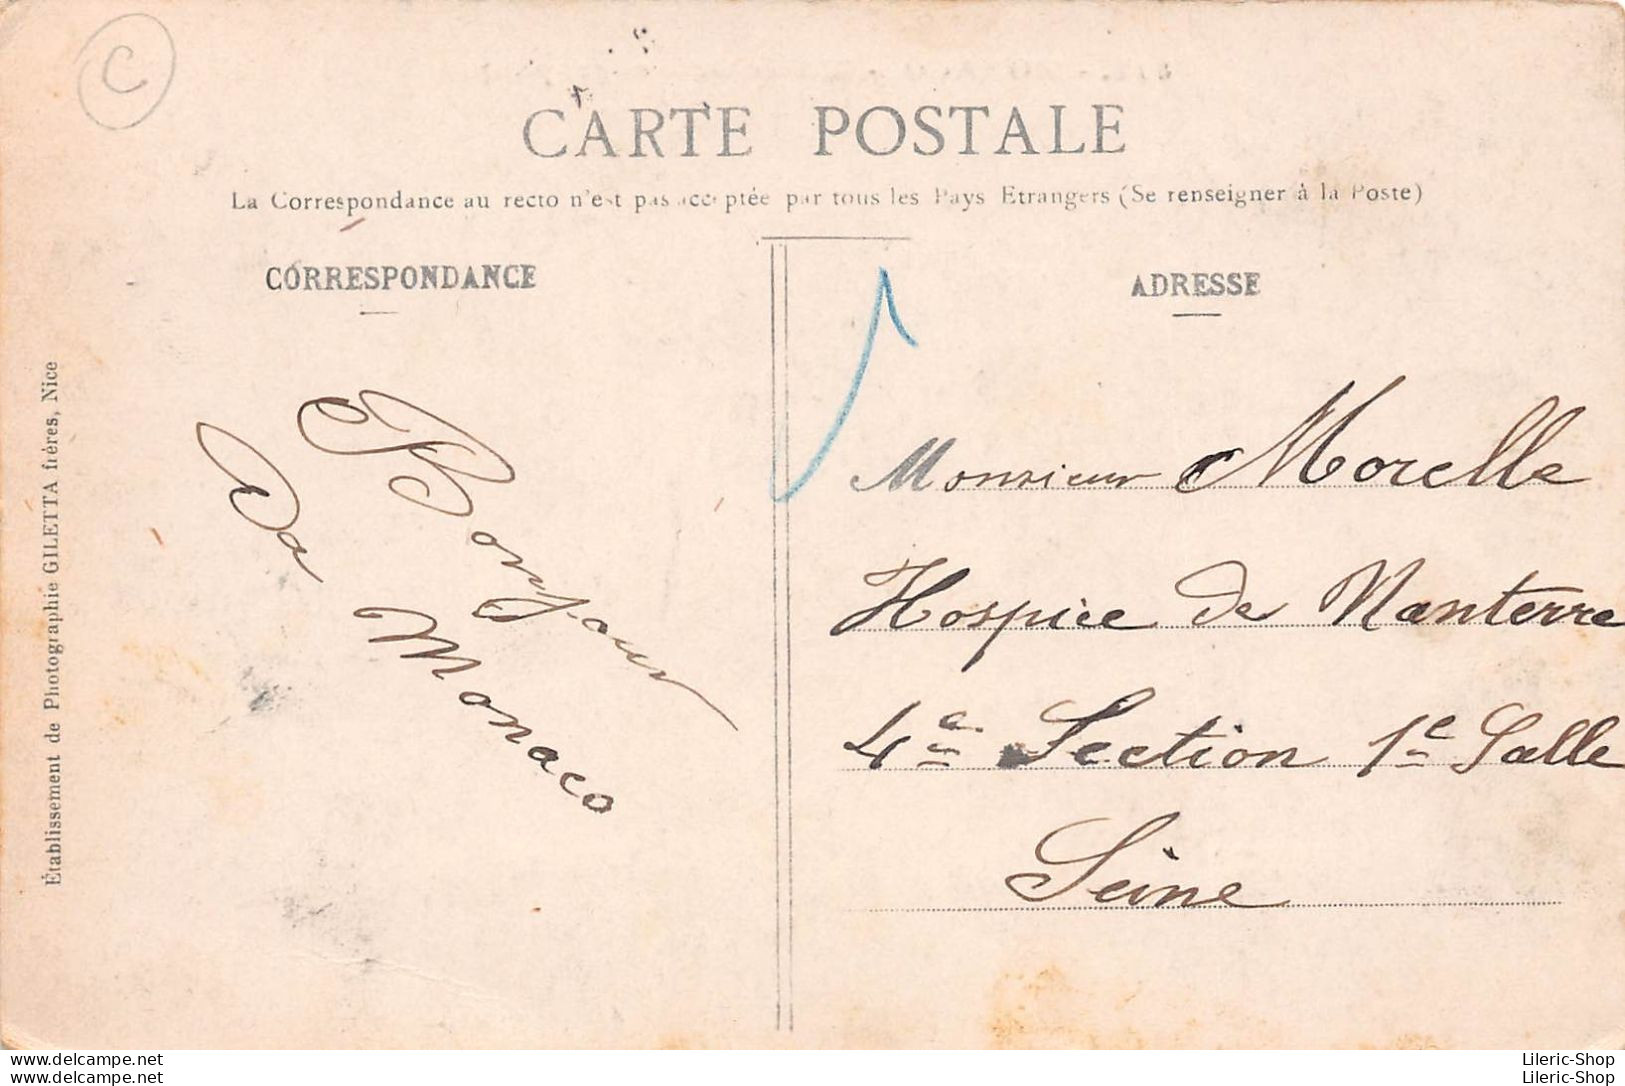 C
CARTE POSTALE
La Correspondance au recto n'est pas acceptée par tous les Pays Etrangers (Se renseigner à la Poste)
CORRESPONDANCE
Bonjour
Da Monaco
ADRESSE
Monsieur Morelle
Hospice de Nanterre
4e Section 1e Salle
Seine
Établissement de Photographie GILETTA frères, Nice
www.delcampe.net
www.delcampe.net
Lileric-Shop
Lileric-Shop